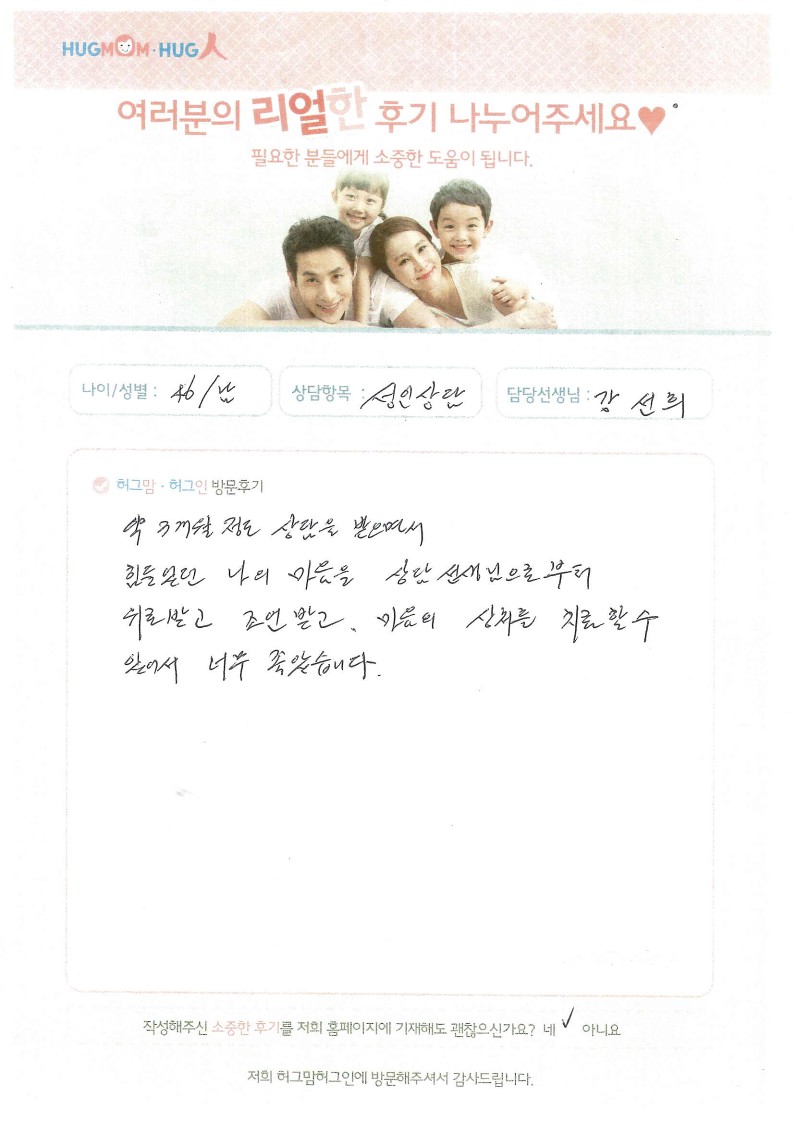 HUGMOM·HUG人
여러분의 리얼한 후기 나누어주세요♥
필요한 분들에게 소중한 도움이 됩니다.
나이/성별 : 46/남 상담항목 : 성인상담 담당선생님 : 강선희
허그맘·허그인 방문후기
약 3개월 정도 상담을 받으면서
힘들었던 나의 마음을 상담 선생님으로부터
위로받고 조언받고, 마음의 상처를 치료할 수
있어서 너무 좋았습니다.
작성해주신 소중한 후기를 저희 홈페이지에 기재해도 괜찮으신가요? 네 ✓ 아니요
저희 허그맘허그인에 방문해주셔서 감사드립니다.